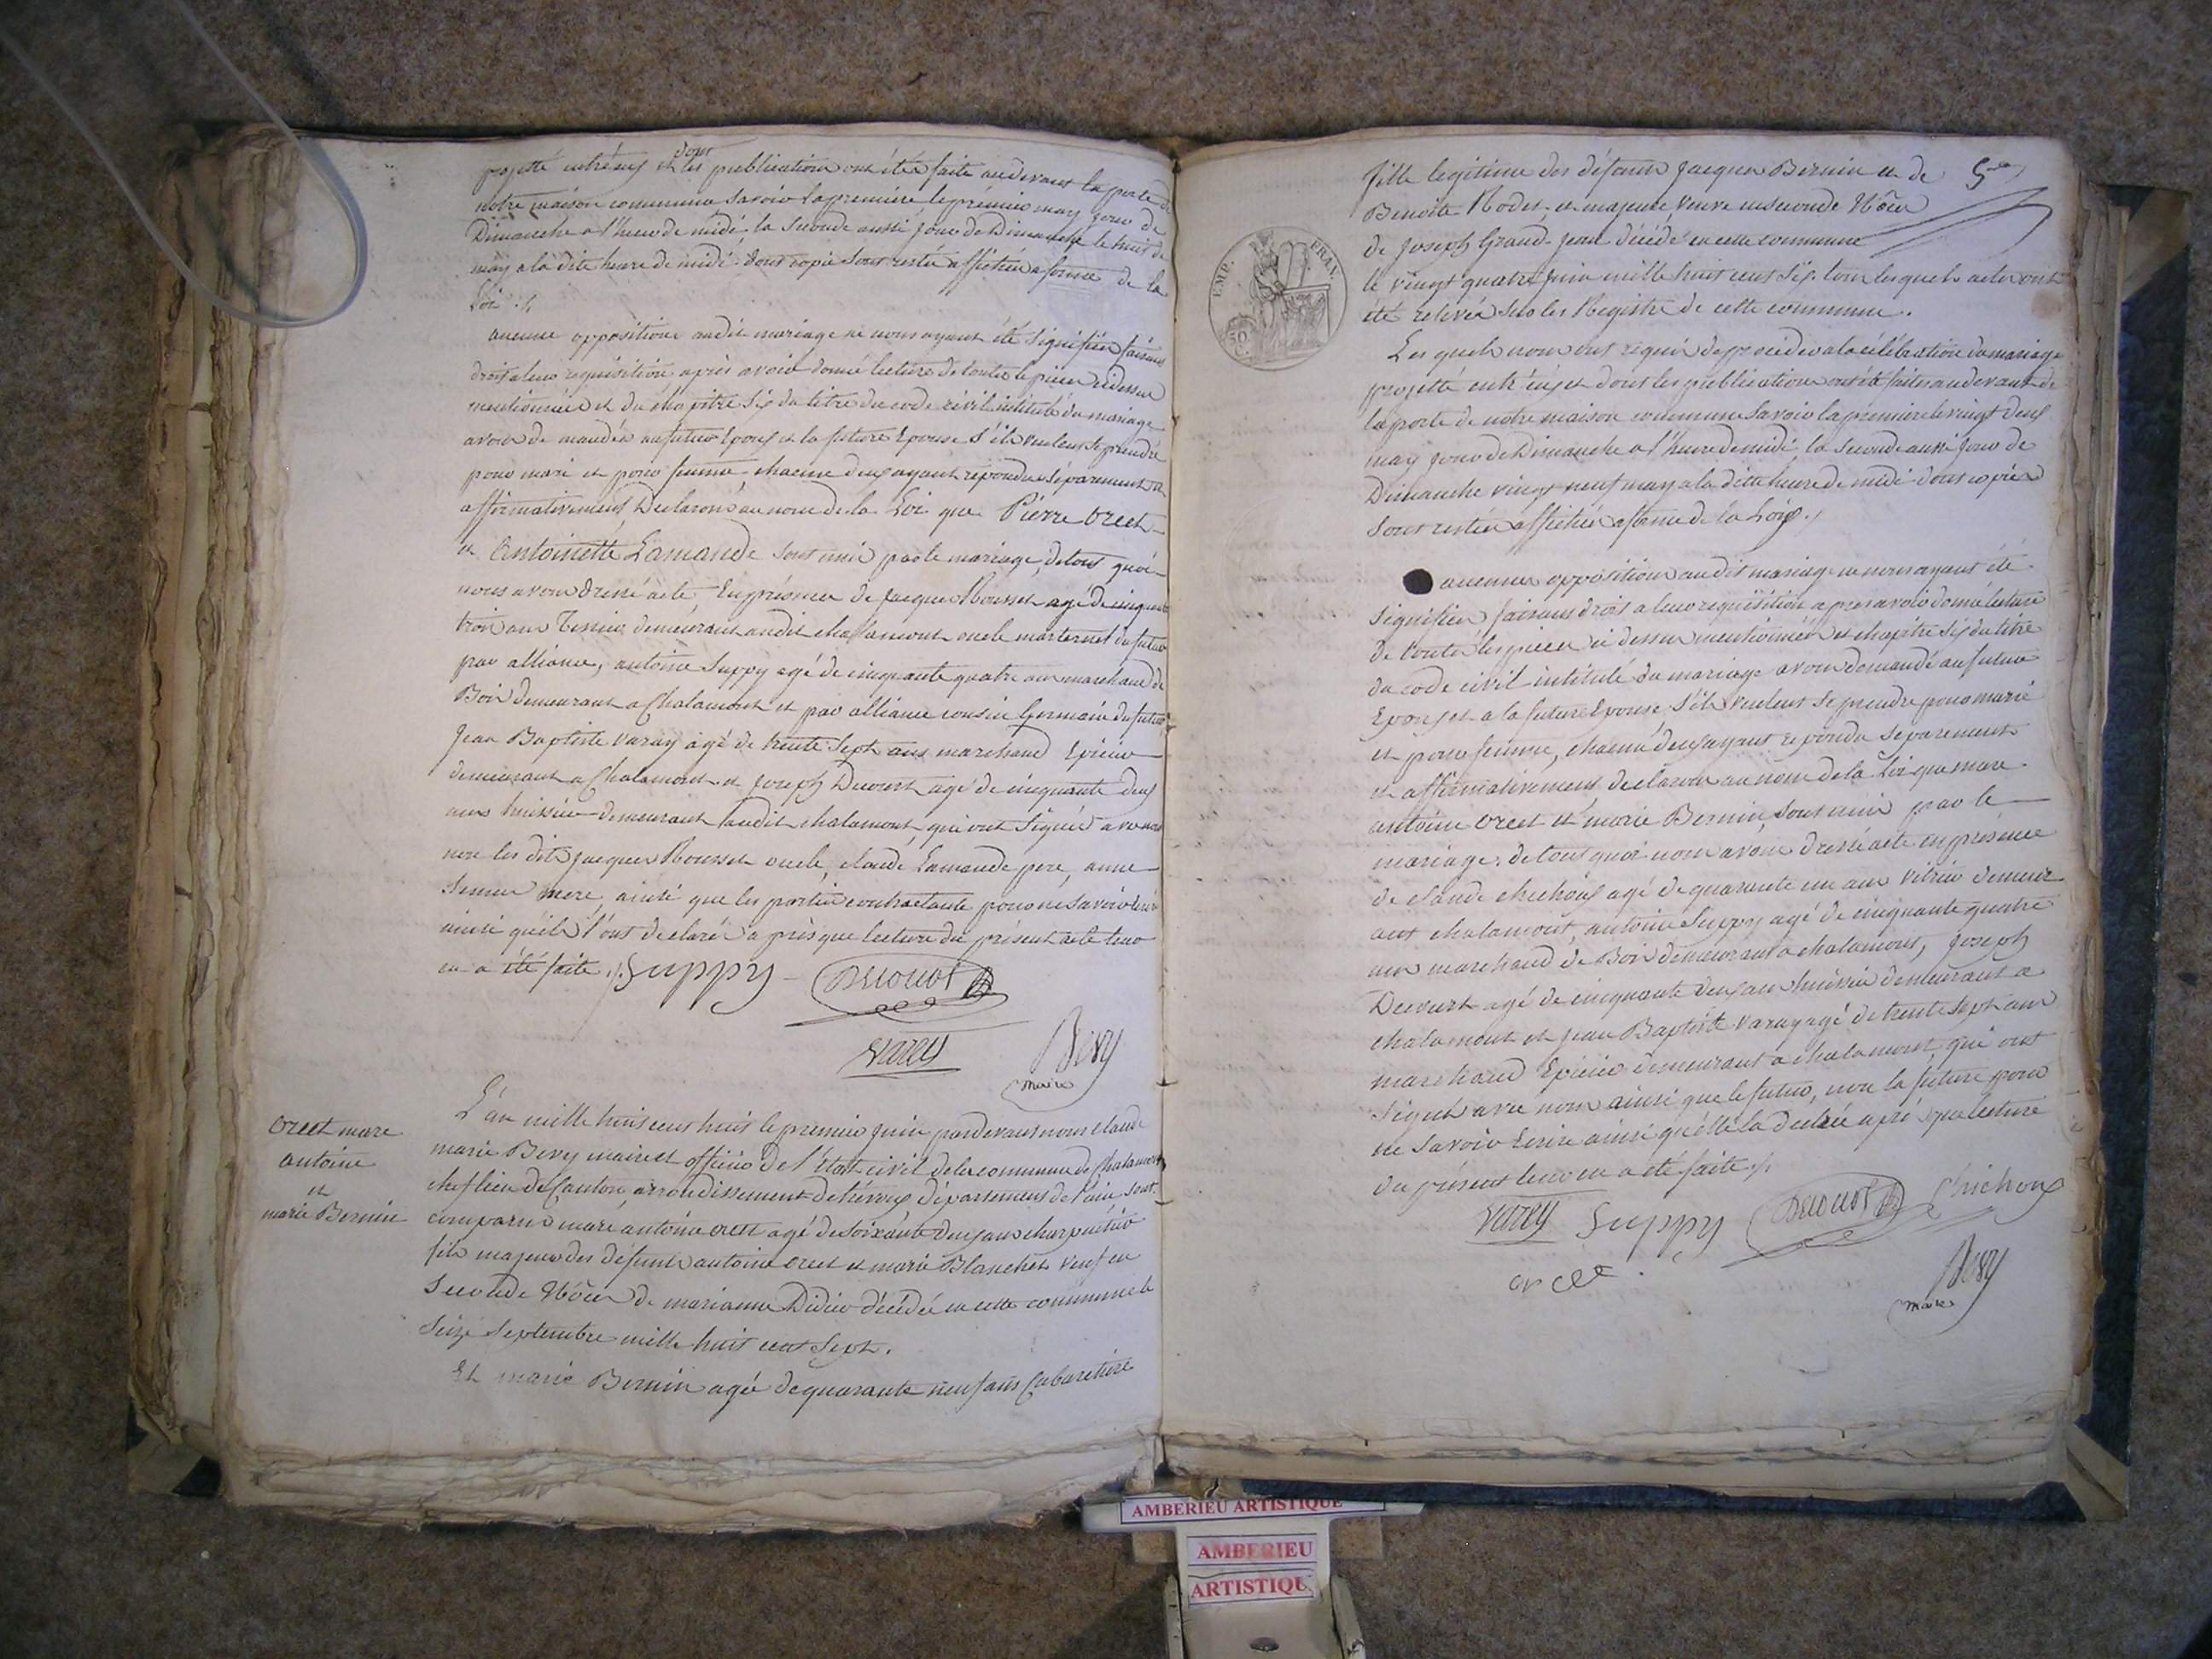 projetté entréeux et dont les publication ont été faite audevant la porte de
notre maison commune savoir la première le premier may jour de
Dimanche a l'heure de midi la seconde aussi jour de Dimanche le huit de
may a la dite heure de midi dont copie sont restée affichée a forme de la
Loi ./.
aucune opposition audit mariage ne nous ayant été signifiée faisant
droit a leur requisition après avoir donné lecture de toutes le pièces cidessus
mentionnées et du chapitre six du titre du code civil intitulé du mariage
avons demandés au futur Epoux et la future Epouse s'ils veulent se prendre
pour mari et pour femme, chacun deux ayant répondu séparement et
affirmativement, Declarons au nom de la Loi que Pierre Orcet
et Antoinette Lamande sont unis par le mariage, de tout quoi
nous avons dressé acte En présence de Jacque Rousset agé de cinquante
trois ans Tessier demeurant audit chalamont oncle maternel du futur
par alliance, antoine Suppy agé de cinquante quatre ans marchand de
Bois demeurant a Chalamont et par alliance cousin Germain du futur
Jean Baptiste Varay agé de trente sept ans marchand Epicier
demeurant a Chalamont et Joseph Decourt agé de cinquante deux
ans huissier demeurant audit chalamont qui ont signés avec nous
non les dits Jacques Rousset oncle, claude Lamande pere, anne
mere, ainsi que les parties contractante pour ne savoir Ecrire
ainsi qu'ils l'ont déclaré après que lecture du présent acte leur
en a été faite ./. Suppy Decourt
Varey Bevy
maire
Orcet marc
antoine
et
marie Bernin
L'an mille huit cent huit le premier juin pardevant nous claude
marie Bevy maire et officier de l'état civil de la commune de Chalamont
chef lieu de Canton, arrondissement de trévoux département de l'ain, sont
comparus marc antoine orcet agé de soixante deux ans charpentier
fils majeur des défunts antoine orcet et marie Blanchet veuf en
seconde Nôces de marianne Didier décédée en cette commune le
seize septembre mille huit cent sept.
Et marie Bernin agée de quarante neuf ans Cabaretiere
fille legitime des défunts Jacques Bernin et de
Benoite Rodes, et majeure, veuve en seconde Nôces
de Joseph Grand-Jean décédé en cette commune
le vingt quatre juin mille huit cent six. tous lesquels actes ont
été relevés sur les Registre de cette commune.
EMP. FRAN.
50
C.
Les quels nous ont requis de procéder a la célébration du mariage
projetté entr'eux et dont les publication ont été faites audevant de
la porte de notre maison commune savoir la première le vingt deux
may jour de Dimanche a l'heure de midi, la seconde aussi jour de
Dimanche vingt neuf may a la dite heure de midi dont copies
sont restées affichées a forme de la Loix./.
aucune opposition audit mariage ne nous ayant été
signifiée faisant droit a leur requisition apres avoir donné lecture
de toutes les pieces ci dessus mentionnées et chapitre six du titre
du code civil intitulé du mariage avons demandé au futur
Epoux et a la future Epouse s'ils veulent se prendre pour marie
et pour femme, chacun deux ayant repondu séparement
et affirmativement, declarons au nom de la Loi que marc
antoine orcet et marie Bernin, sont unis par le
mariage, de tout quoi nous avons dressé acte en présence
de claude chichoux agé de quarante un ans vitrier demeur-
ant chalamont, antoine Suppy agé de cinquante quatre
ans marchand de Bois demeurant a chalamont, Joseph
Decourt agé de cinquante deux ans huissier demeurant a
chalamont et Jean Baptiste Varay agé de trente sept ans
marchand Epicier demeurant a chalamont, qui ont
signés avec nous ainsi que le futur, non la future pour
ne savoir Ecrire ainsi qu'elle la declarée après que lecture
du présent leur en a été faite ./.
Varey Suppy Decourt Chichoux
orcet Bevy
maire
AMBERIEU ARTISTIQUE
AMBERIEU
ARTISTIQU